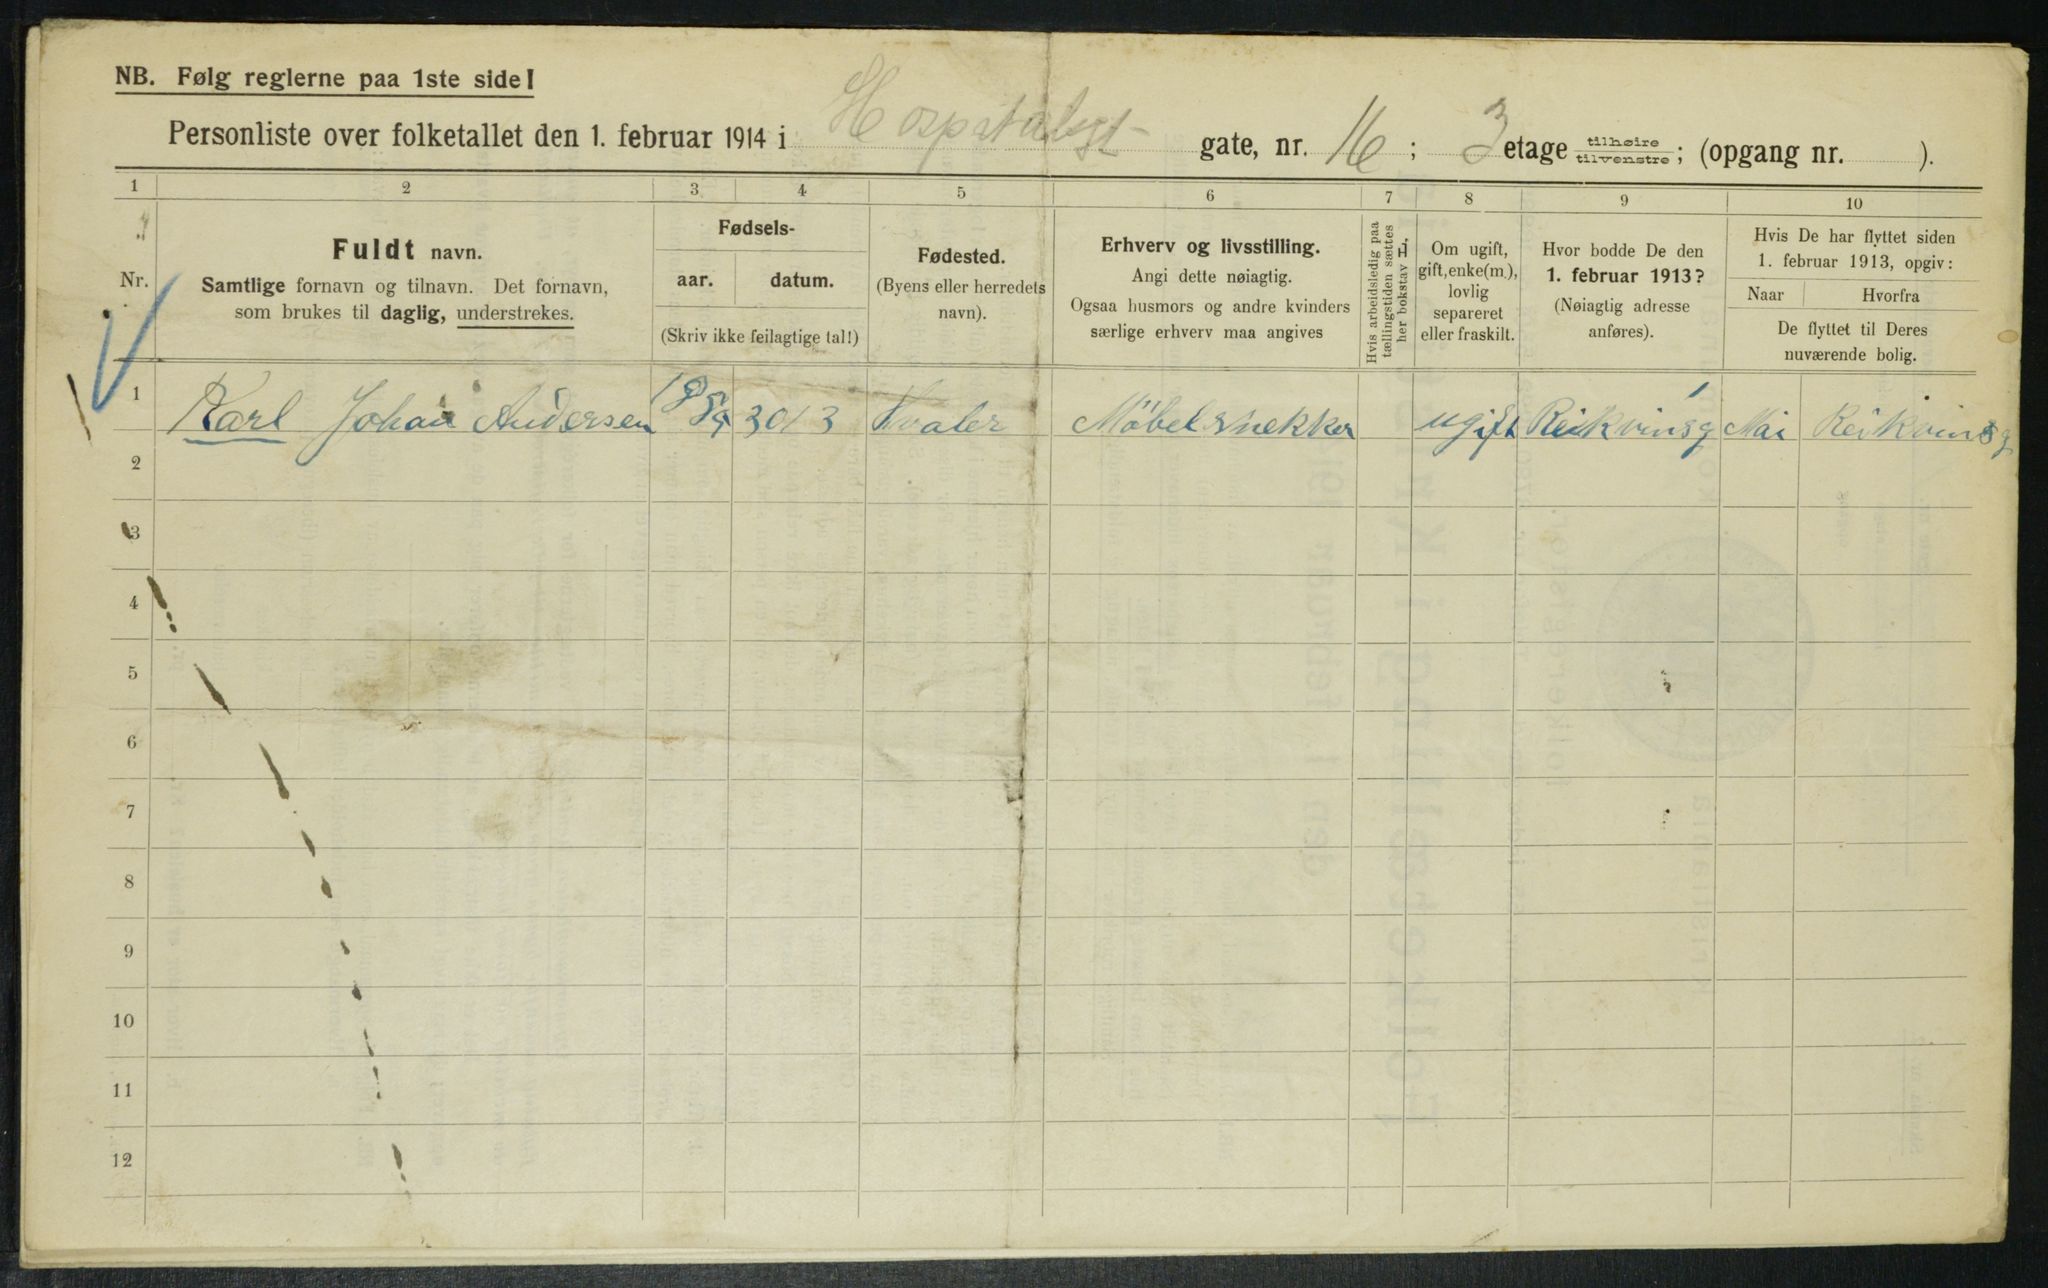 NB. Følg reglerne paa 1ste side!
Personliste over folketallet den 1. februar 1914 i Hospitalsgt gate, nr. 16; 3 etage tilhøire tilvenstre; (opgang nr. ).
1 2 3 4 5 6 7 8 9 10
Nr.
Fuldt navn.
Samtlige fornavn og tilnavn. Det fornavn,
som brukes til daglig, understrekes.
Fødsels-
aar. datum.
(Skriv ikke feilagtige tal!)
Fødested.
(Byens eller herredets
navn).
Erhverv og livsstilling.
Angi dette nøiagtig.
Ogsaa husmors og andre kvinders
særlige erhverv maa angives
Hvis arbeidsledig paa
tællingstiden sættes
her bokstav L.
Om ugift,
gift, enke(m.),
lovlig
separeret
eller fraskilt.
Hvor bodde De den
1. februar 1913?
(Nøiagtig adresse
anføres).
Hvis De har flyttet siden
1. februar 1913, opgiv:
Naar Hvorfra
De flyttet til Deres
nuværende bolig.
1 Karl Johan Andersen 30/3 Hvaler Møbelsnekker ugift Reikvinsg Mai Reikvinsg
2
3
4
5
6
7
8
9
10
11
12